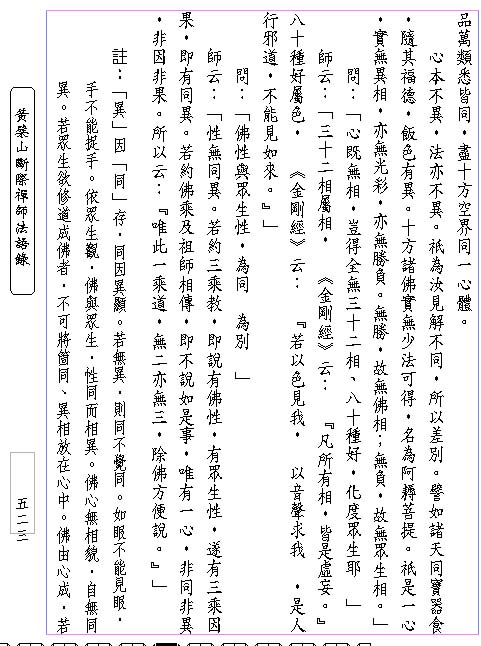 品萬類悉皆同，盡十方空界同一心體。
心本不異，法亦不異。祇為汝見解不同，所以差別。譬如諸天同寶器食
，隨其福德，飯色有異。十方諸佛實無少法可得，名為阿耨菩提。祇是一心
，實無異相，亦無光彩，亦無勝負。無勝，故無佛相；無負，故無眾生相。」
問：「心既無相，豈得全無三十二相、八十種好，化度眾生耶 」
師云：「三十二相屬相， 《金剛經》云： 『凡所有相，皆是虛妄。』
八十種好屬色， 《金剛經》云： 『若以色見我， 以音聲求我 ，是人
行邪道，不能見如來。』」
問：「佛性與眾生性，為同 為別 」
師云：「性無同異。若約三乘教，即說有佛性，有眾生性，遂有三乘因
果，即有同異。若約佛乘及祖師相傳，即不說如是事，唯有一心，非同非異
，非因非果。所以云：『唯此一乘道，無二亦無三，除佛方便說。』」
註：「異」因「同」存，同因異顯。若無異，則同不覺同。如眼不能見眼，
手不能捉手。依眾生觀，佛與眾生，性同而相異。佛心無相貌，自無同
異。若眾生欲修道成佛者，不可將箇同、異相放在心中。佛由心成，若
黃檗山斷際禪師法語錄
五二三